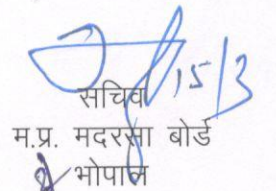 15/3
सचिव
म.प्र. मदरसा बोर्ड
भोपाल